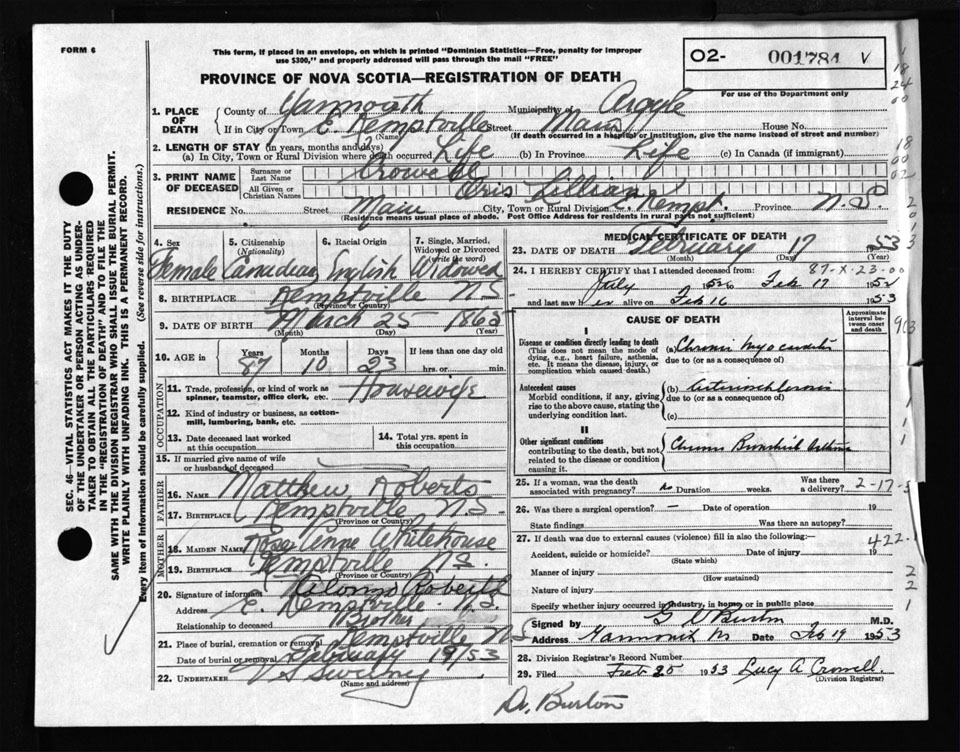 FORM 6
This form, if placed in an envelope, on which is printed "Dominion Statistics—Free, penalty for improper
use $300," and properly addressed will pass through the mail "FREE"
O2- 001784 V
For use of the Department only
PROVINCE OF NOVA SCOTIA—REGISTRATION OF DEATH
SEC. 46—VITAL STATISTICS ACT MAKES IT THE DUTY
OF THE UNDERTAKER OR PERSON ACTING AS UNDER-
TAKER TO OBTAIN ALL THE PARTICULARS REQUIRED
IN THE "REGISTRATION OF DEATH" AND TO FILE THE
SAME WITH THE DIVISION REGISTRAR WHO SHALL ISSUE THE BURIAL PERMIT.
WRITE PLAINLY WITH UNFADING INK. THIS IS A PERMANENT RECORD.
Every item of information should be carefully supplied. (See reverse side for instructions.)
1. PLACE OF DEATH County of Yarmouth Municipality of Argyle
If in City or Town E. Kemptville (Name) Street Main House No.
(If death occurred in a hospital or institution, give the name instead of street and number)
2. LENGTH OF STAY (in years, months and days)
(a) In City, Town or Rural Division where death occurred Life (b) In Province Life (c) In Canada (if immigrant)
3. PRINT NAME OF DECEASED Surname or Last Name Crowell
All Given or Christian Names Oris Lillian
RESIDENCE No. Street Main City, Town or Rural Division E. Kempt. Province N.S
(Residence means usual place of abode. Post Office Address for residents in rural parts not sufficient)
4. Sex 5. Citizenship (Nationality) 6. Racial Origin 7. Single, Married, Widowed or Divorced (write the word)
Female Canadian English Widowed
8. BIRTHPLACE Kemptville N.S.
(Province or Country)
9. DATE OF BIRTH March 25 1865
(Month) (Day) (Year)
10. AGE in Years Months Days If less than one day old
87 10 23 hrs. or min.
OCCUPATION
11. Trade, profession, or kind of work as spinner, teamster, office clerk, etc. Housewife
12. Kind of industry or business, as cotton-mill, lumbering, bank, etc.
13. Date deceased last worked at this occupation 14. Total yrs. spent in this occupation
15. If married give name of wife or husband of deceased
FATHER
16. NAME Matthew Roberts
17. BIRTHPLACE Kemptville N.S.
(Province or Country)
MOTHER
18. MAIDEN NAME Rose Anne Whitehouse
19. BIRTHPLACE Kemptville N.S.
(Province or Country)
20. Signature of informant Roberts
Address E. Kemptville N.S.
Relationship to deceased Brother
21. Place of burial, cremation or removal Kemptville N.S
Date of burial or removal February 19/53
22. UNDERTAKER V S Sweeney
(Name and address)
MEDICAL CERTIFICATE OF DEATH
23. DATE OF DEATH February 17 1953
(Month) (Day)
87-X-23-00
24. I HEREBY CERTIFY that I attended deceased from:
July 1952 to Feb 17 1952
and last saw her alive on Feb 16 1953
CAUSE OF DEATH Approximate interval between onset and death
I
Disease or condition directly leading to death (a) Chronic Myocarditis
(This does not mean the mode of dying, e.g., heart failure, asthenia, etc. It means the disease, injury, or complication which caused death.) due to (or as a consequence of)
Antecedent causes (b) Arteriosclerosis
Morbid conditions, if any, giving rise to the above cause, stating the underlying condition last. due to (or as a consequence of)
(c)
II
Other significant conditions contributing to the death, but not related to the disease or condition causing it. Chronic Bronchial Asthma
25. If a woman, was the death associated with pregnancy? no Duration weeks. Was there a delivery? 2-17-3
26. Was there a surgical operation? — Date of operation 19
State findings Was there an autopsy?
27. If death was due to external causes (violence) fill in also the following:— 422.1
Accident, suicide or homicide? Date of injury 19
(State which)
Manner of injury
(How sustained)
Nature of injury
Specify whether injury occurred in industry, in home or in public place
Signed by G V Burton M.D.
Address Date Feb 19 1953
28. Division Registrar's Record Number
29. Filed Feb 25 1953 Lucy A Crowell.
(Division Registrar)
Dr. Burton